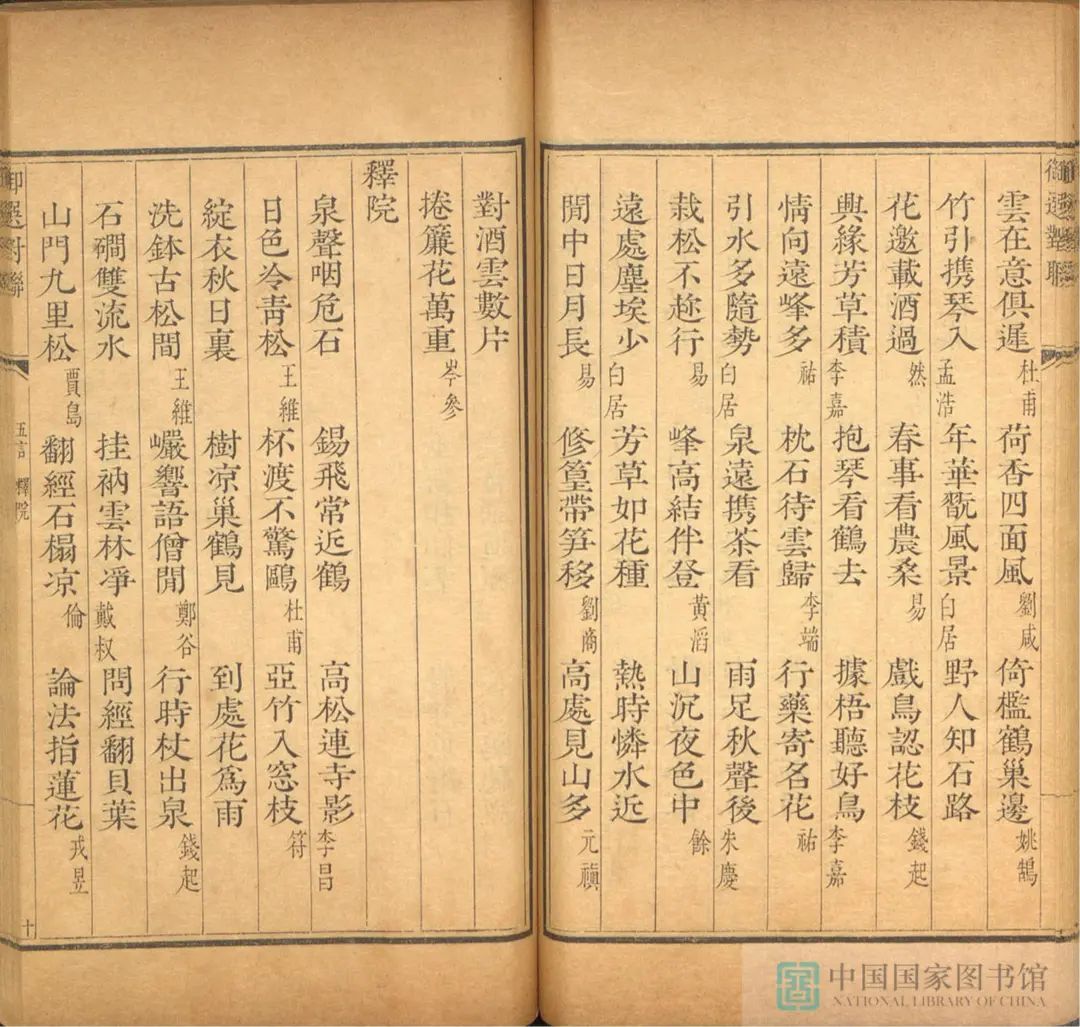 雲在意俱遲 杜甫 荷香四面風 劉咸 倚檻鶴巢邊 姚鵠
竹引携琴入 孟浩 年華翫風景 白居 野人知石路
花邀載酒過 然 春事看農桑 易 戲鳥認花枝 錢起
興緣芳草積 李嘉 抱琴看鶴去 據梧聽好鳥 李嘉
情向遠峰多 祐 枕石待雲歸 李端 行藥寄名花 祐
引水多隨勢 白居 泉遠携茶看 雨足秋聲後 朱慶
栽松不趂行 易 峰高結伴登 黃滔 山沉夜色中 餘
遠處塵埃少 白居 芳草如花種 熱時憐水近
閒中日月長 易 修篁帶笋移 劉商 高處見山多 元稹
御選對聯
對酒雲數片
捲簾花萬重 岑參
釋院
泉聲咽危石 錫飛常近鶴 高松連寺影 李昌
日色冷青松 王維 杯渡不驚鷗 杜甫 亞竹入窓枝 符
綻衣秋日裏 樹凉巢鶴見 到處花爲雨
洗鉢古松間 王維 巖響語僧閒 鄭谷 行時杖出泉 錢起
石磵雙流水 挂衲雲林淨 戴叔 問經翻貝葉
山門九里松 賈島 翻經石榻凉 倫 論法指蓮花 戎昱
御選對聯 五言 釋院 十
中国国家图书馆
NATIONAL LIBRARY OF CHINA